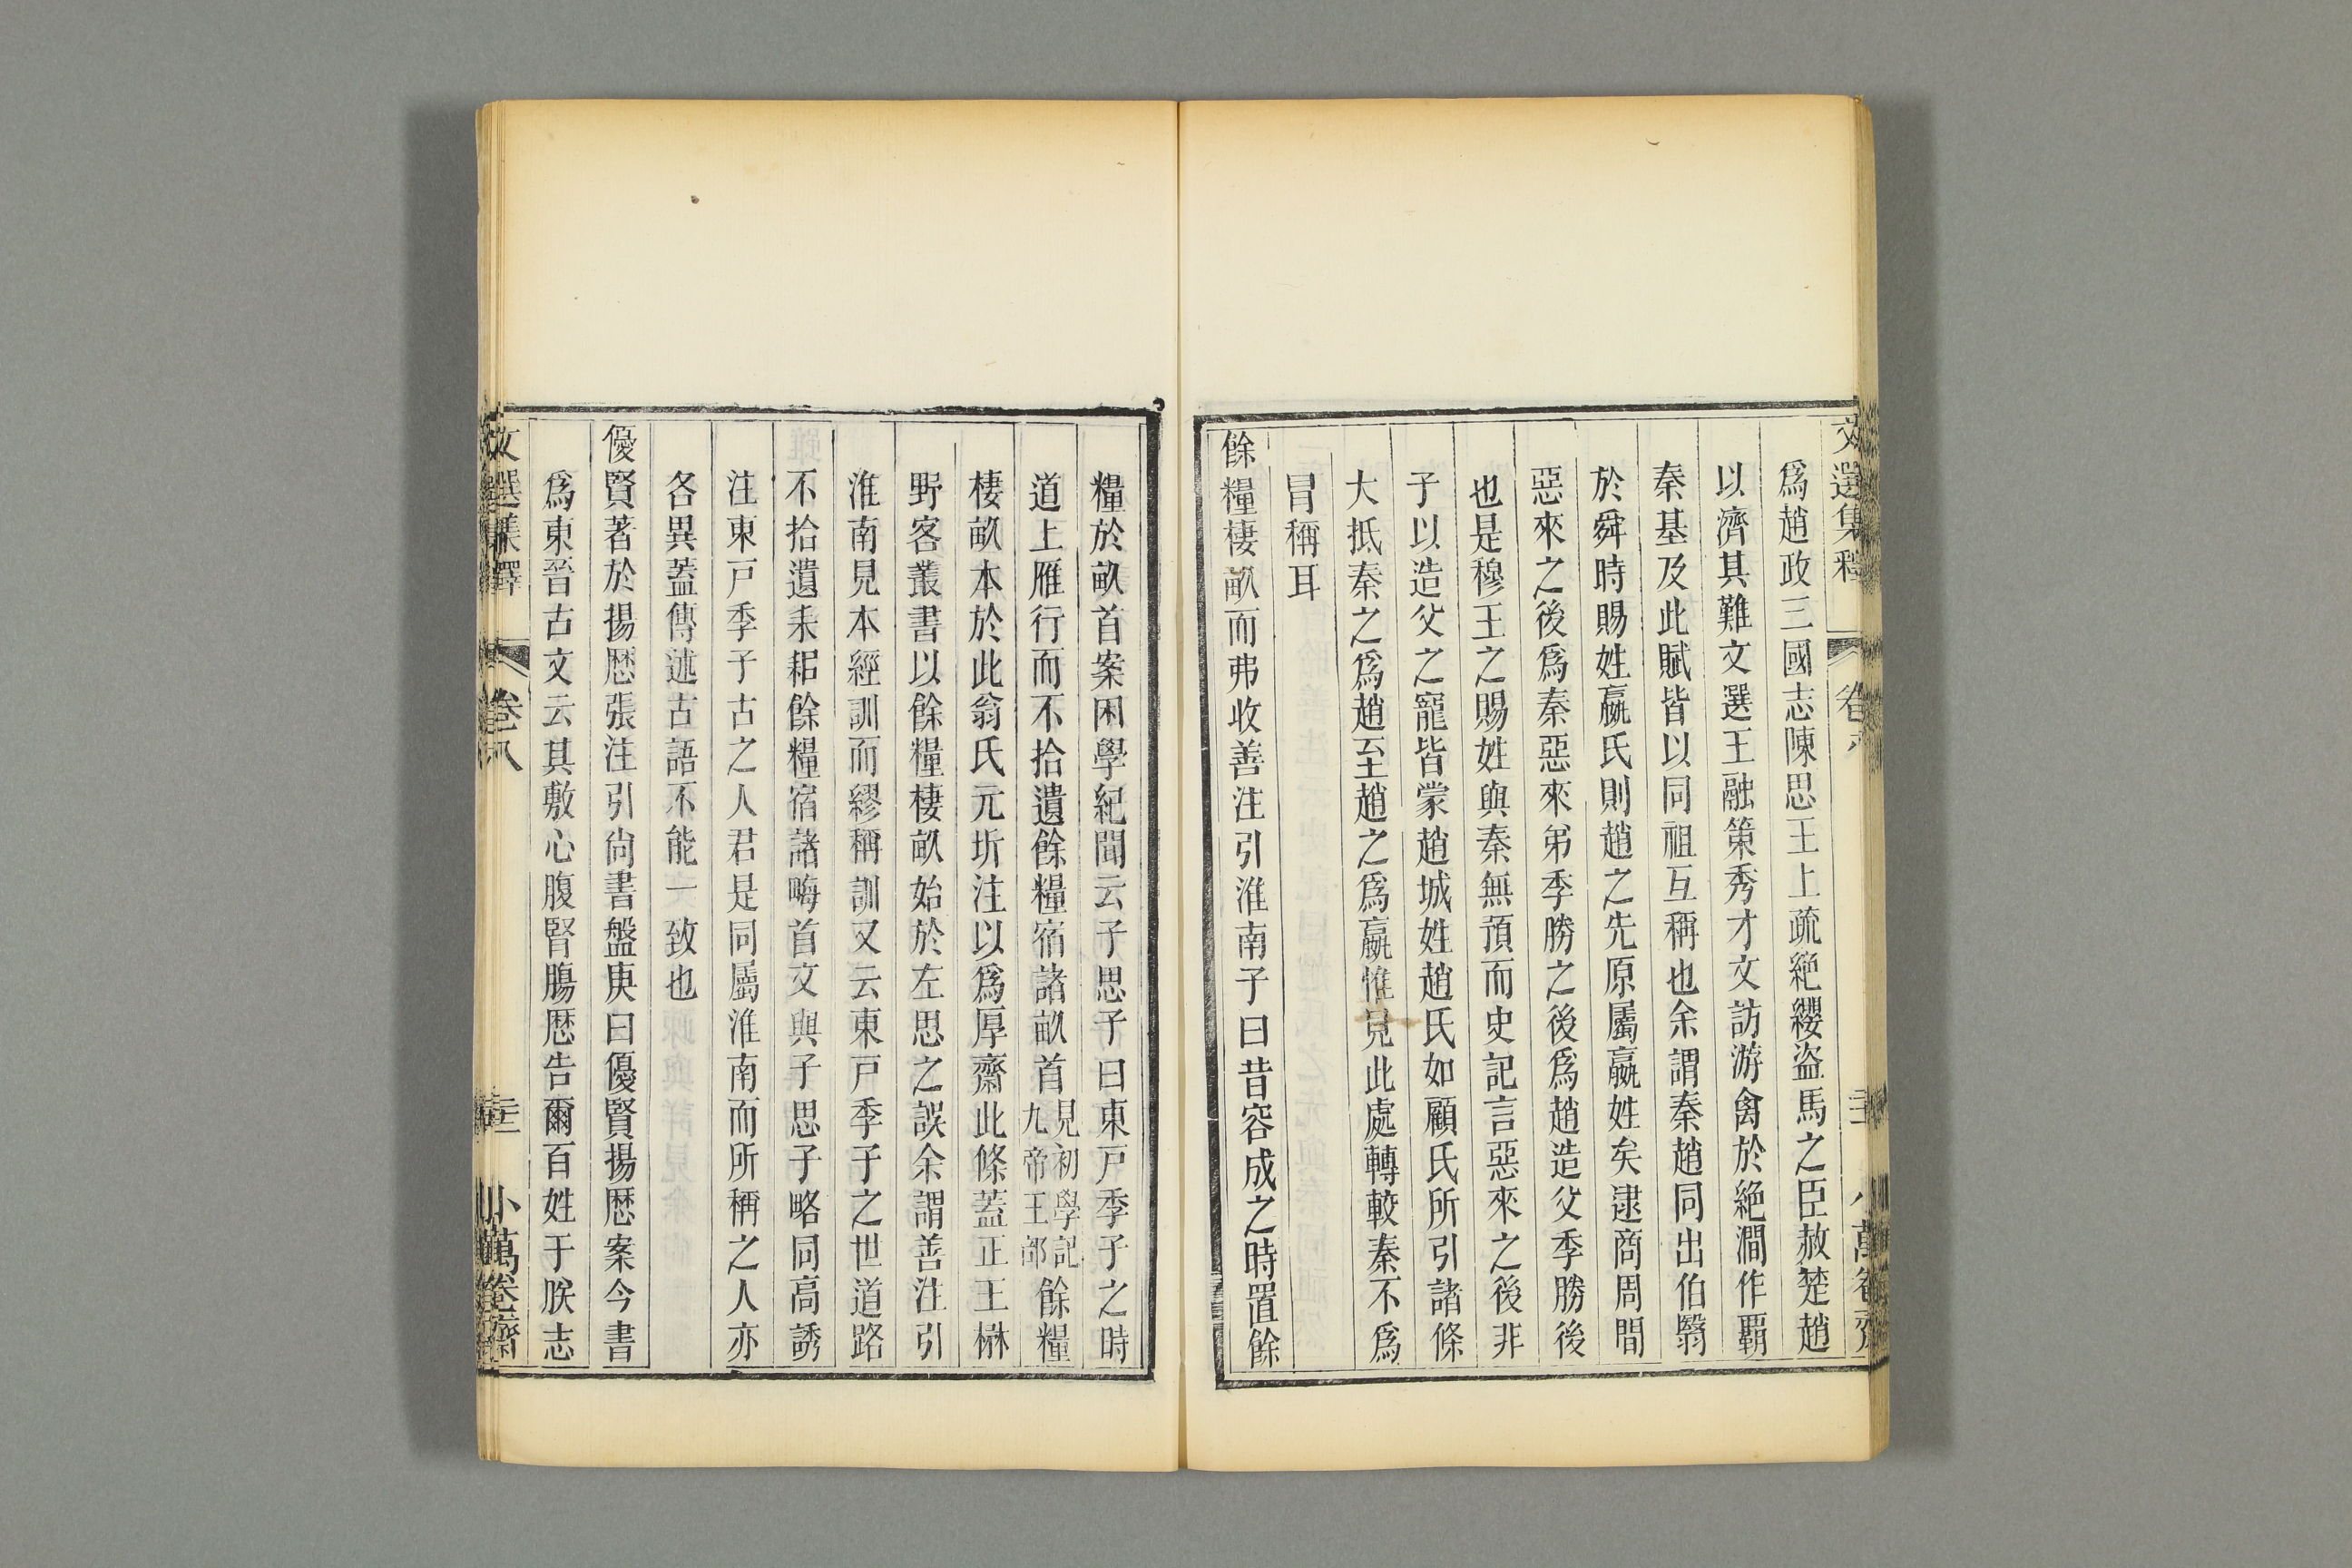 爲趙政三國志陳思王上疏絶纓盜馬之臣赦楚趙
以濟其難文選王融策秀才文訪游禽於絶澗作霸
秦基及此賦皆以同祖互稱也余謂秦趙同出伯翳
於舜時賜姓嬴氏則趙之先原屬嬴姓矣逮商周間
惡來之後爲秦惡來弟季勝之後爲趙造父季勝後
也是穆王之賜姓與秦無預而史記言惡來之後非
子以造父之寵皆蒙趙城姓趙氏如顧氏所引諸條
大抵秦之爲趙至趙之爲嬴惟見此處轉較秦不爲
冒稱耳
餘糧棲畝而弗收善注引淮南子曰昔容成之時置餘
糧於畝首案困學紀聞云子思子曰東戸季子之時
道上雁行而不拾遺餘糧宿諸畝首見初學記九帝王部餘糧
棲畝本於此翁氏元圻注以爲厚齋此條蓋正王楙
野客叢書以餘糧棲畝始於左思之誤余謂善注引
淮南見本經訓而繆稱訓又云東戸季子之世道路
不拾遺耒耜餘糧宿諸畮首文與子思子略同高誘
注東戸季子古之人君是同屬淮南而所稱之人亦
各異蓋傳述古語不能一致也
優賢著於揚歴張注引尙書盤庚曰優賢揚歴案今書
爲東晉古文云其敷心腹腎腸歴告爾百姓于朕志
文選集釋 卷八 小萬卷齋